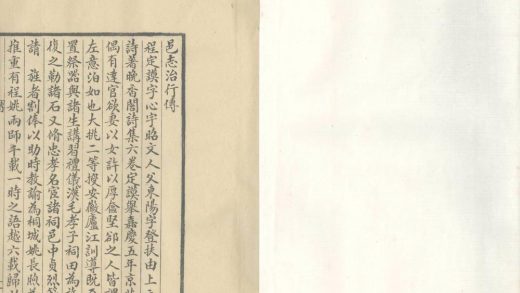 邑志治行傳
程定謨字心宇昭文人父東陽字登扶由上
詩著晚香閣詩集六卷定謨舉嘉慶五年京
偶有達官欲妻以女許以厚奩堅卻之人皆
左意泊如也大挑二等授安徽廬江訓導既
置祭器與諸生講習禮儀漢毛孝子祠田為
復之勒諸石又脩忠孝名宦諸祠邑中貞烈
請旌者割俸以助時教諭為桐城姚長煦
推重有程姚兩師年載一時之語越六載歸